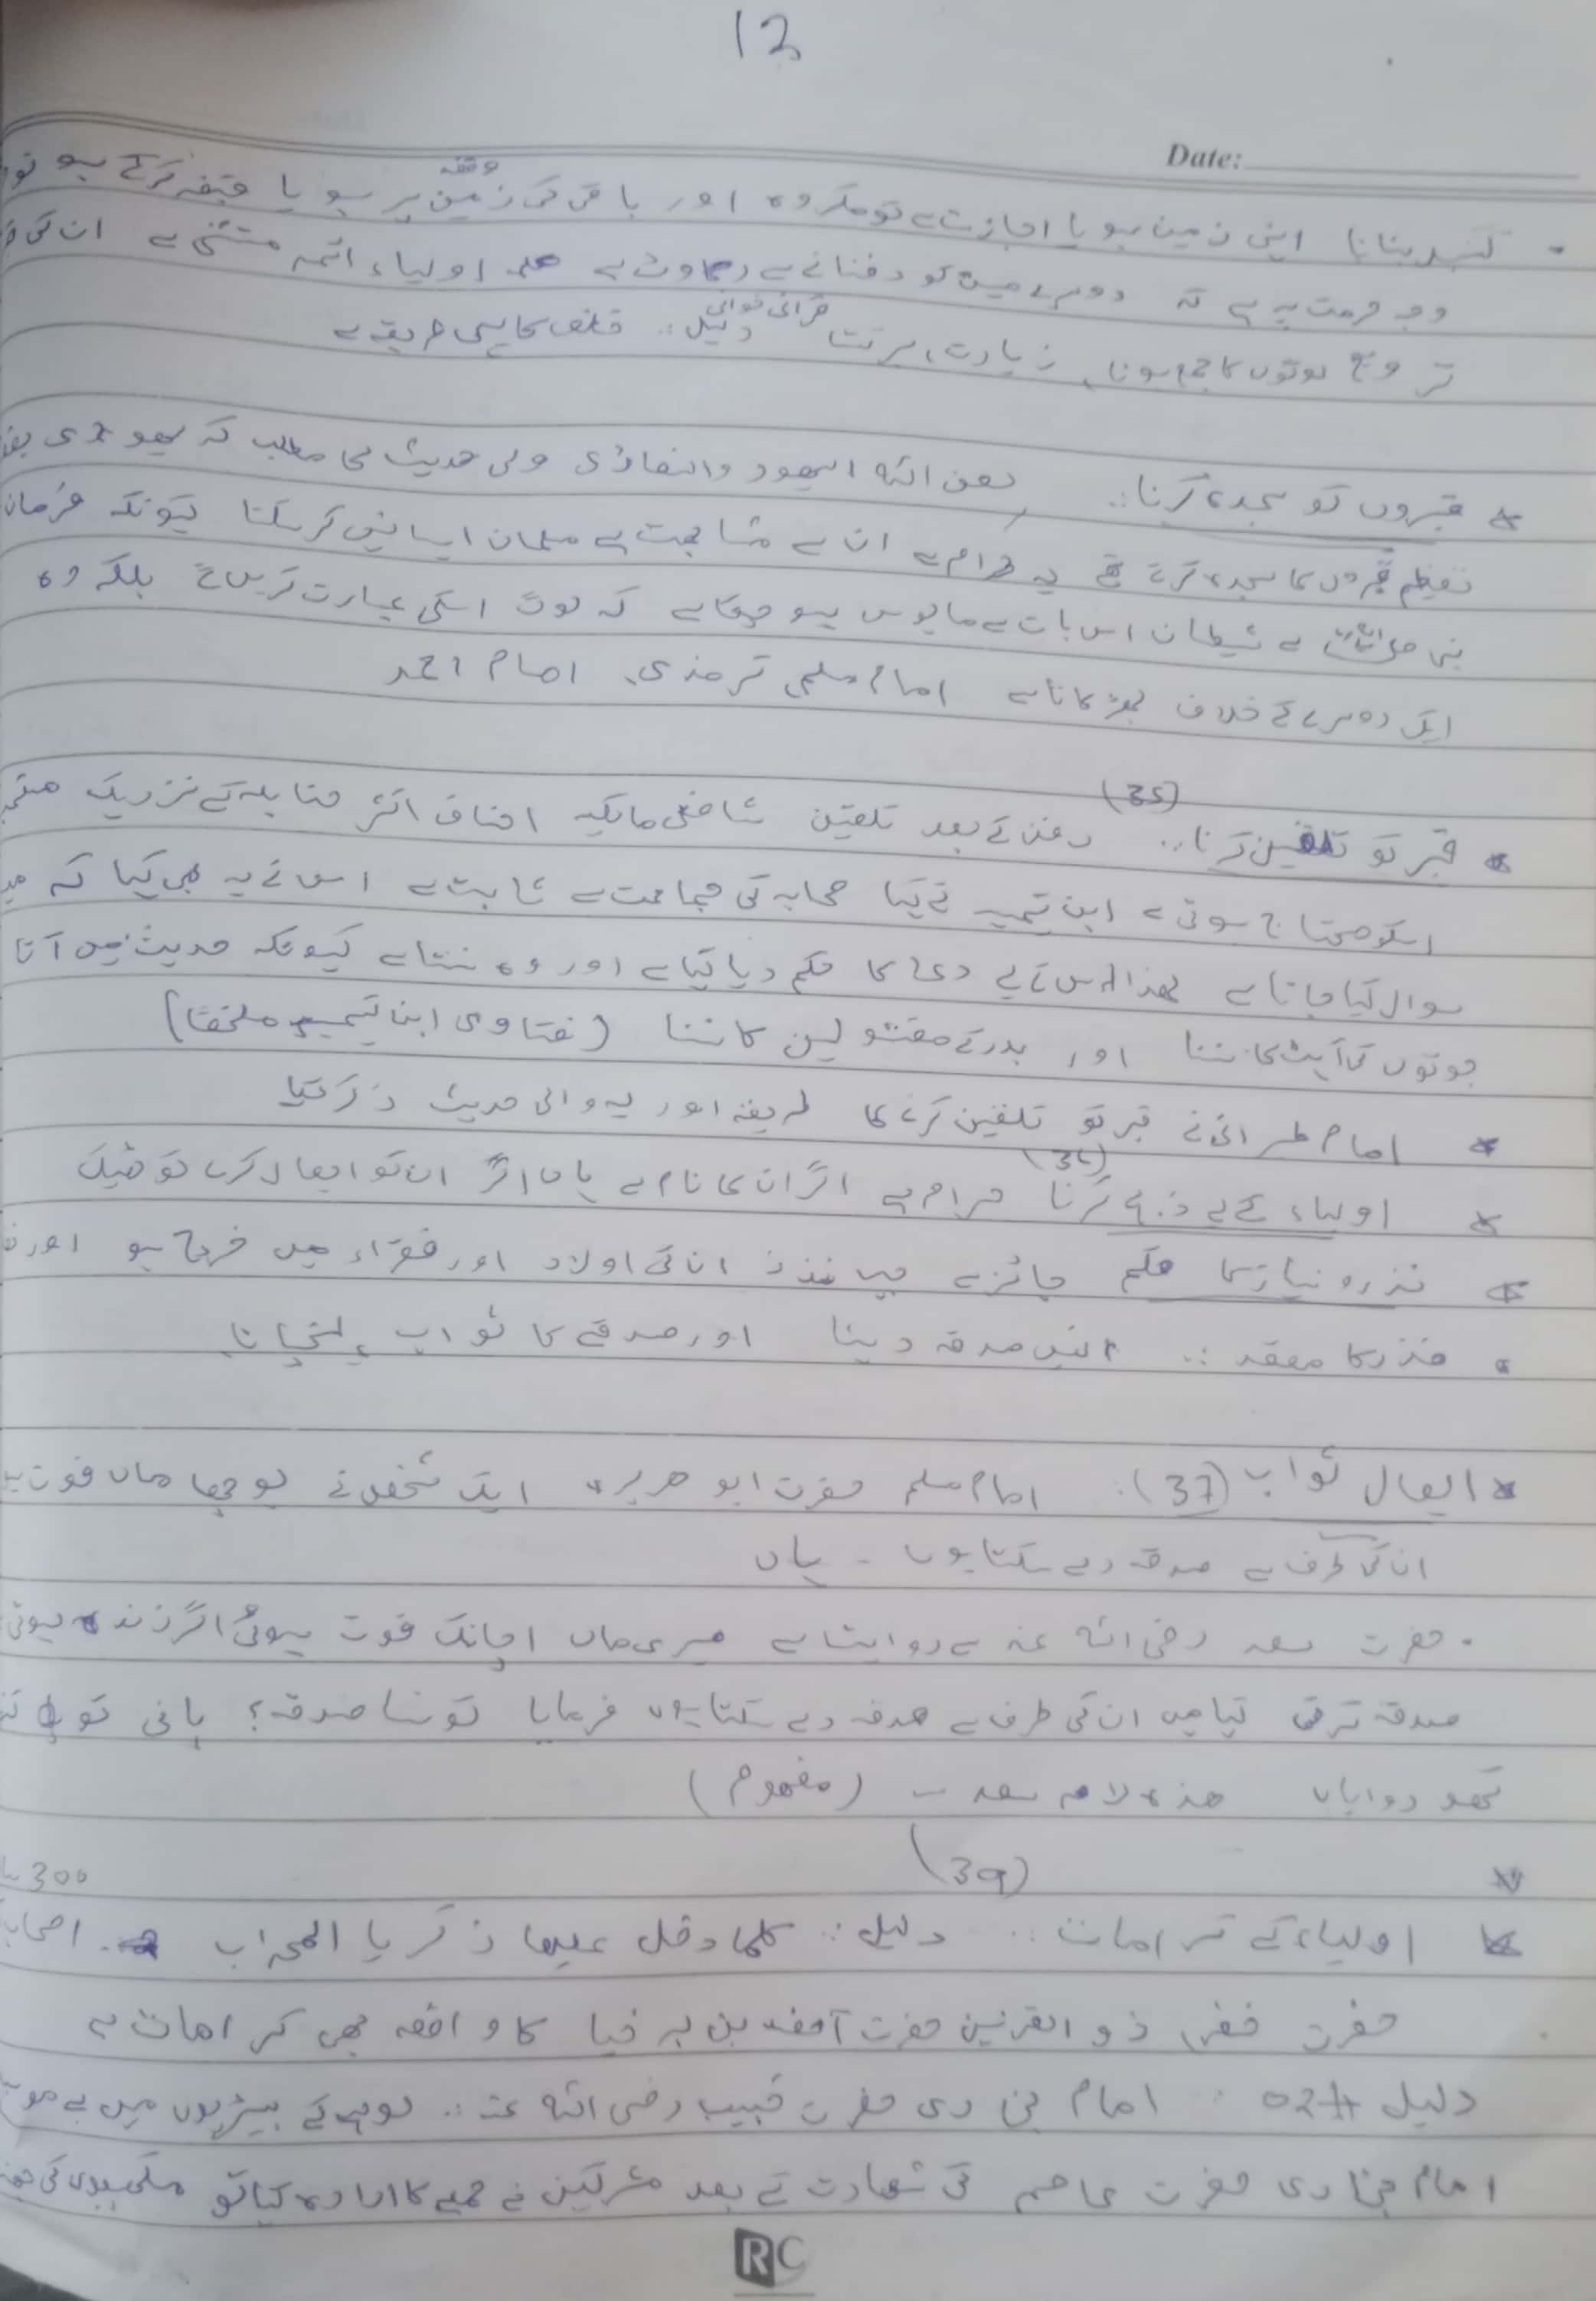 12
Date:
گنبد بنانا اپنی زمین ہو یا اجازت ہے تو مکروہ اور باقی کی زمین وقف پر ہو یا قبضہ کرکے ہو تو
وجہ حرمت یہ ہے کہ دوسرے میت کو دفنانے سے رکاوٹ ہے علماء اولیاء ائمہ مستثنی ہے ان کی
لوگوں کا جمع ہونا، زیارت، برکت قرآنی خوانی دلیل:: خلف کا یہی طریقہ ہے
* قبروں کو سجدہ کرنا:: لعن اللہ الیھود والنصاری ولی حدیث کا مطلب کہ یھودی
تعظیم قبروں کا سجدہ کرتے تھے یہ حرام ہے ان سے مشابہت ہے مسلمان ایسا نہیں کرسکتا کیونکہ فرمان
نبی ہے شیطان اس بات سے مایوس ہو چکا ہے کہ لوگ اسکی عبادت کریں گے بلکہ وہ
ایک دوسرے کے خلاف بھڑکاتا ہے امام مسلم، ترمذی، امام احمد
(35)
* قبر کو تلقین کرنا:: دفن کے بعد تلقین شافعی مالکیہ احناف اکثر حنابلہ کے نزدیک
اسکو محتاج ہوتی ہے ابن تیمیہ نے کہا صحابہ کی جماعت سے ثابت ہے اس نے یہ بھی کہا کہ
سوال کیا جاتا ہے لھذا اس کے لیے دعا کا حکم دیا گیا ہے اور وہ سنتا ہے کیونکہ حدیث میں آتا
جوتوں کی آہٹ کا سننا اور بدر کے مقتولین کا سننا (فتاوی ابن تیمیہ ملخصا)
* امام طبرانی نے قبر کو تلقین کرنے کا طریقہ اور یہ والی حدیث ذکر کیا
(36)
* اولیاء کے لیے ذبح کرنا حرام ہے اگر ان کا نام ہے ہاں اگر ان کو ایصال کرے تو ٹھیک
* نذر و نیاز کا حکم جائز ہے جب نذر ان کی اولاد اور فقراء میں خرچ ہو اور
• نذر کا مقصد :: انہیں صدقہ دینا اور صدقے کا ثواب پہنچانا
* ایصال ثواب (37): امام مسلم حضرت ابو ھریرہ ایک شخص نے پوچھا ماں فوت
ان کی طرف سے صدقہ دے سکتا ہوں - ہاں
• حضرت سعد رضی اللہ عنہ سے روایت ہے میری ماں اچانک فوت ہوئی اگر زندہ ہوتی
صدقہ کرتی کیا میں ان کی طرف سے صدقہ دے سکتا ہوں فرمایا کونسا صدقہ؟ پانی تو
کھودوایاں ھذہ لام سعد – (مفھوم)
* (39) 300
* اولیاء کے کرامات :: دلیل :: کلما دخل علیھا زکریا المحراب اصحاب
حضرت خضر، ذوالقرنین حضرت آصف بن برخیا کا واقعہ بھی کرامات ہے
دلیل #02 :: امام بخاری حضرت خبیب رضی اللہ عنہ :: لوہے کے بیڑیوں میں بے
امام بخاری حضرت عاصم کی شھادت کے بعد مشرکین نے جسے کا ارادہ کیا تو مکھیوں کی
RC